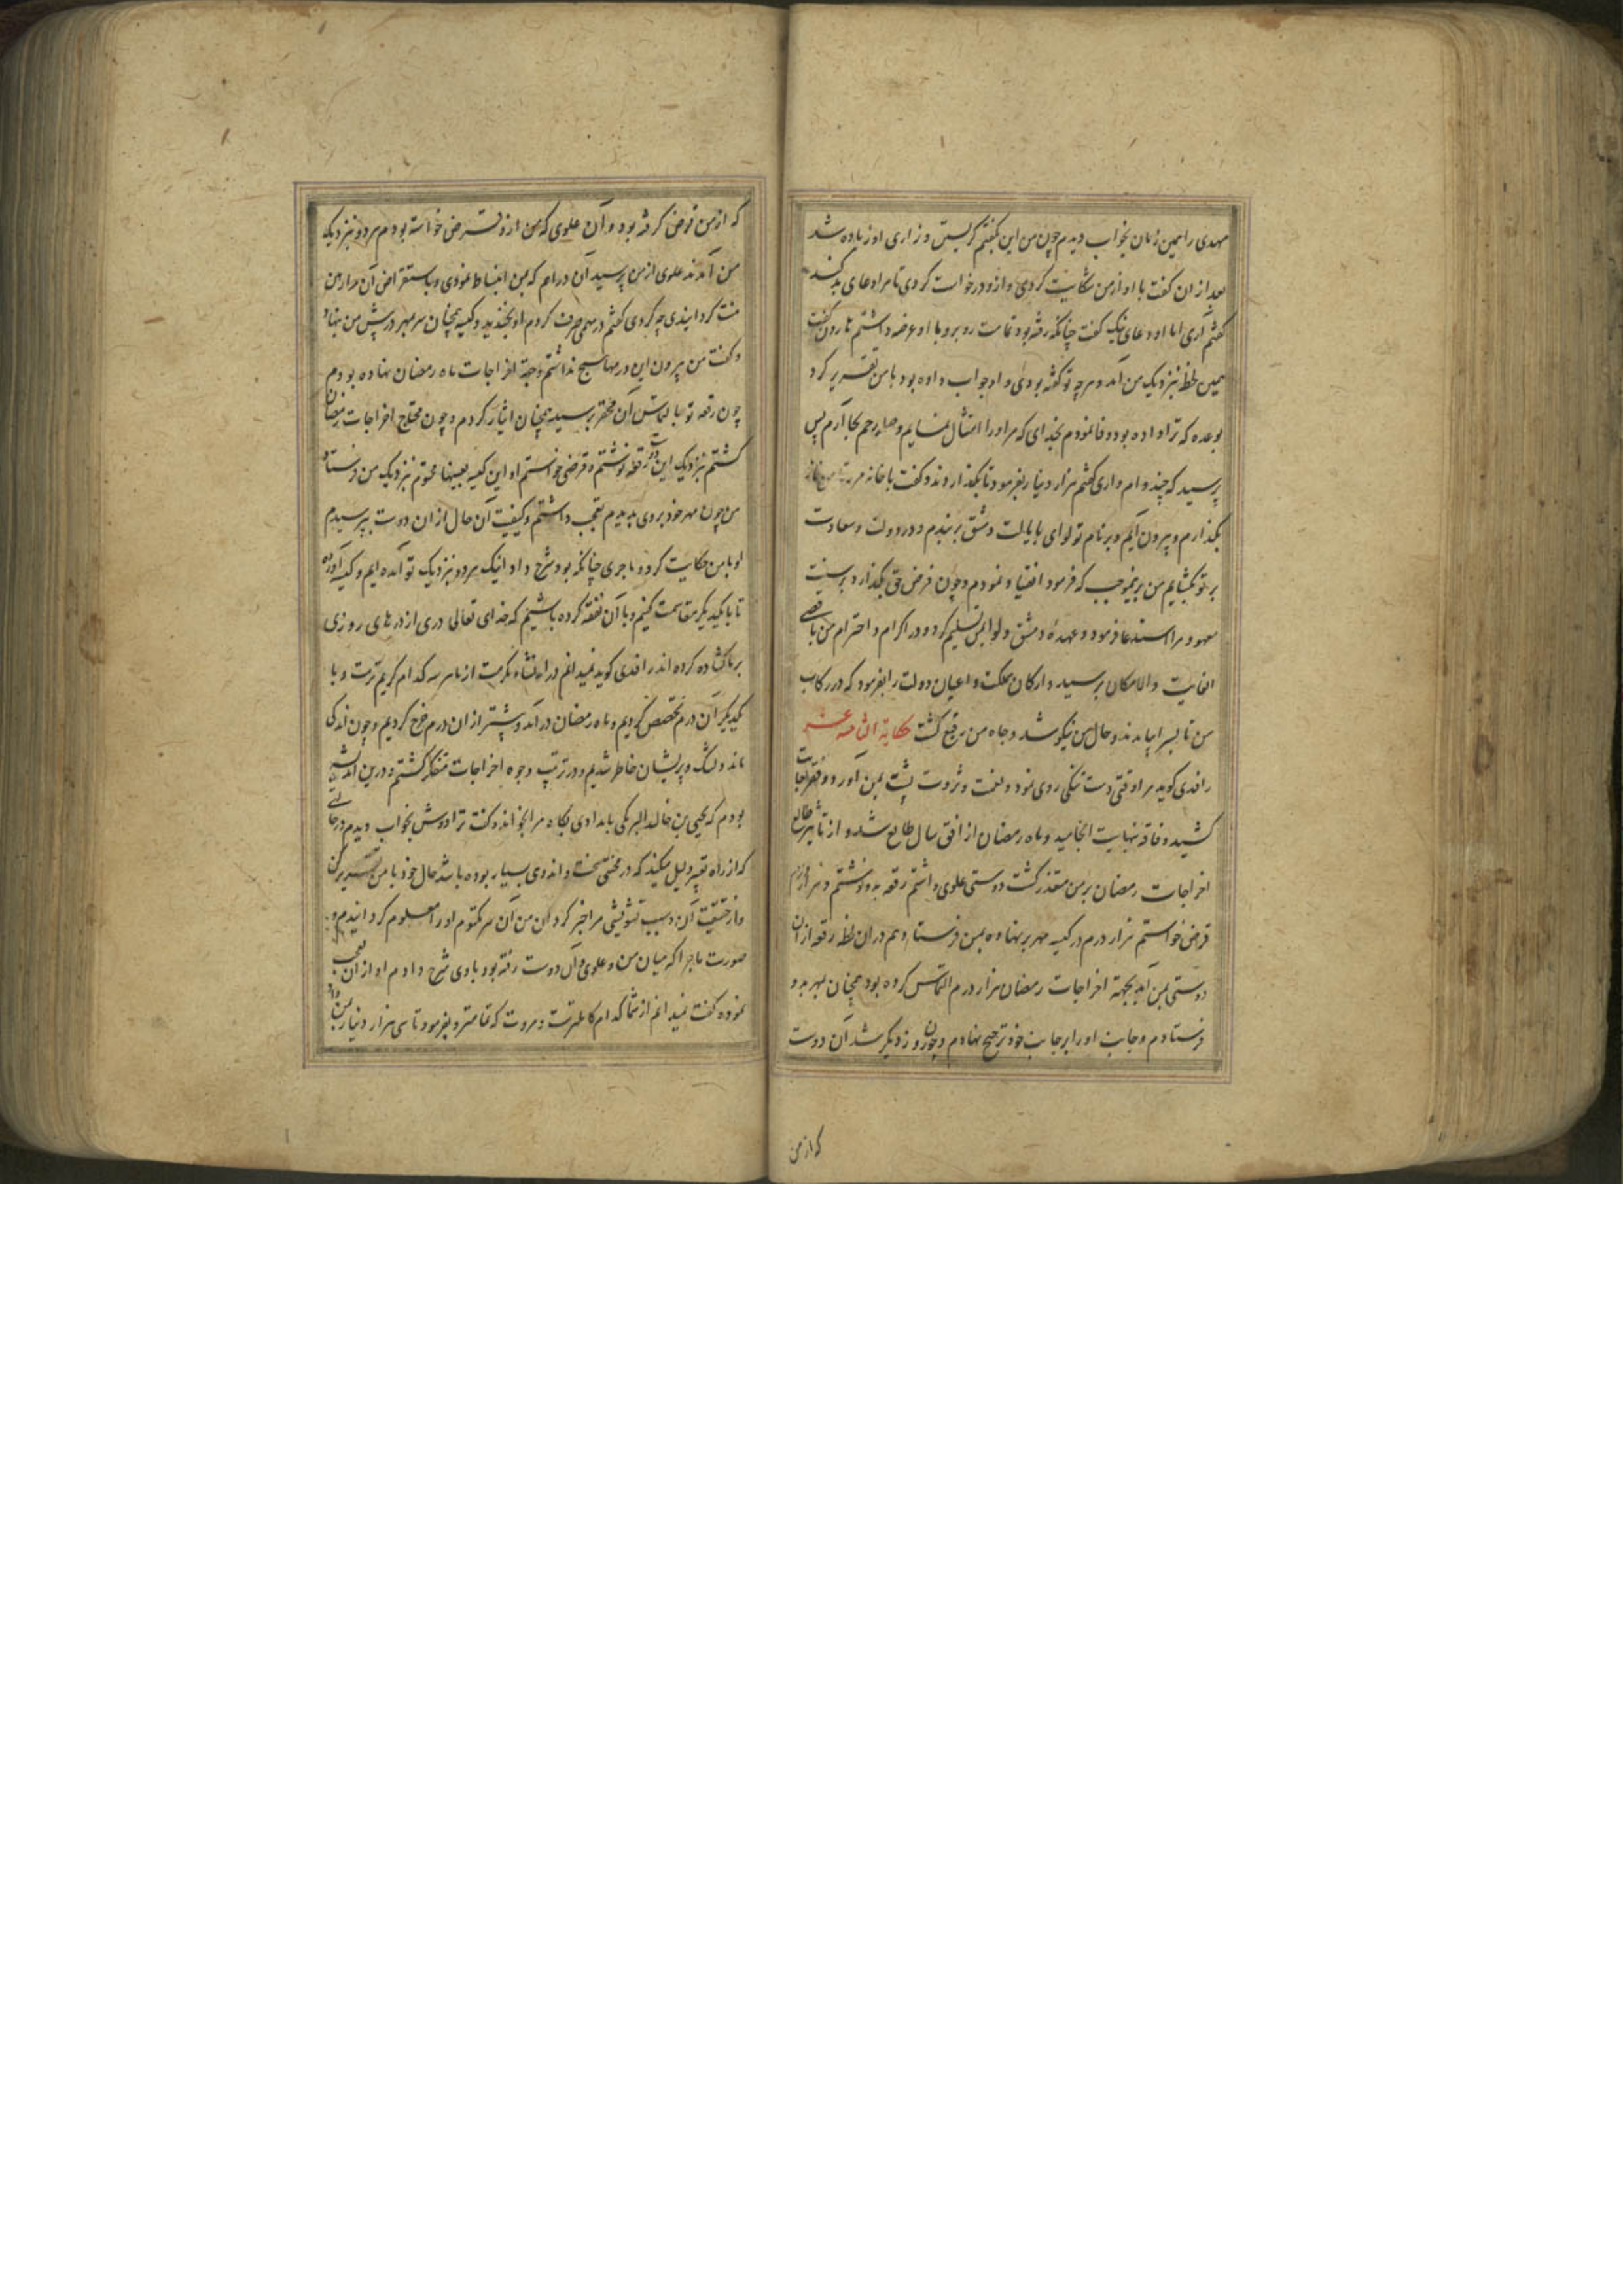 مهدی را همین زمان بخواب دیدم چون من این بگفتم گریستن و زاری او زیاده شد
بعد از ان گفت با او از من شکایت کردی و ازو درخواست کردی تا مرا دعای بد کند
گفتم آری اما او دعای نیک گفت چنانکه رفته بود تمامت رو برو با او عرضه داشتم هارون گفت
همین لحظه نزدیک من آمد و هرچه تو گفته بودی و او جواب داده بود با من تقریر کرد
بوعده که ترا داده بود وفا نمودم بخدای که مر او را امتثال نمایم و صله رحم بجا آرم پس
پرسید که چند وام داری گفتم هزار دینار بفرمود تا بگذاردند و گفت با خانه مرو تا من نماز
بگذارم و بیرون آیم و بر نام تو لوای بایالت دمشق بربندم و در دولت و سعادت
بر تو بگشایم من برینموجب که فرمود انقیاد نمودم و چون فرض حق بگذارد بر سنت
معهود مرا استدعا فرمود و عهده دمشق و لوا بمن تسلیم کرد و در اکرام و احترام من باقصی
الغایت والامکان برسید و ارکان مملکت و اعیان دولت را بفرمود که در رکاب
من تا بسرا بیامدند و حال من نیکو شد و جاه من رفیع گشت حکایة الثامنه عشر
راقدی گوید مرا وقتی دست تنگی روی نمود و نعمت و ثروت پشت بمن آورد و فقر بغایت
کشید و فاقه بنهایت انجامید و ماه رمضان از افق سال طالع شد و از تاثیر طالع
اخراجات رمضان بر من متعذر گشت دوستی علوی داشتم رقعه بدو نوشتم و هزار درم
قرض خواستم هزار درم در کیسه مهر بر نهاده بمن فرستاد و هم در ان لحظه رقعه از ان
دوستی بمن آمد بجهة اخراجات رمضان هزار درم التماس کرده بود همچنان بمهر بدو
فرستادم و جانب او را بر جانب خود ترجیح نهادم و چون روز دیگر شد آن دوست
که از من
که از من قرض کرفته بود و آن علوی که من ازو قرض خواسته بودم هر دو نزدیک
من آمدند علوی از من پرسید آن دراهم که بمن انبساط نمودی و باستقراض آن مرا رهین
منت گردانیدی چه کردی گفتم در مهمی صرف کردم او بخندید و کیسه همچنان سر بمهر در پیش من نهاد
و گفت من بیرون این درمها هیچ نداشتم و جهة اخراجات ماه رمضان نهاده بودم
چون رقعه تو بالتماس آن محقر برسید همچنان ایثار کردم و چون محتاج اخراجات رمضان
گشتم بنزدیک این دوست رقعه نوشتم و قرضی خواستم او این کیسه بعینها مختوم بنزدیک من فرستاد
من چون مهر خود بر وی بدیدم تعجب داشتم و کیفیت آن حال از ان دوست بپرسیدم
او با من حکایت کرد و ماجری چنانکه بود شرح داد اینک هر دو نزدیک تو آمده ایم و کیسه آورده
تا با یکدیگر مقاسمت کنیم و با آن نفقه کرده باشیم که خدای تعالی دری از درهای روزی
بر ما گشاده کرده اند راقدی گوید نمیدانم در ان نشاء مکرمت از ما هر سه کدام کریم تریست و با
یکدیگر آن درم تخصص کردیم و ماه رمضان در آمد و بیشتر از ان درم خرج کردیم و چون اندکی
ماند دلتنگ و پریشان خاطر شدیم و در ترتیب وجوه اخراجات متفکر گشتم و درین اندیشه
بودم که یحیی بن خالد البرمکی بامدادی پگاه مرا بخواند و گفت ترا دوش بخواب دیدم در حالتی
که از راه تعبیر دلیل میکند که در محنتی سخت و اندوهی بسیار بوده باشد حال خود با من تقریر کن
و از حقیقت آن و سبب تشویشی مرا خبر کردان من آن سر مکتوم او را معلوم گردانیدم و
صورت ماجرا که میان من و علوی و آن دوست رفته بود با وی شرح دادم او از ان تعجب
نموده گفت نمیدانم از شما کدام کامل ترست و مروت که تمامتر و بفرمود تا سی هزار دینار بمن داد